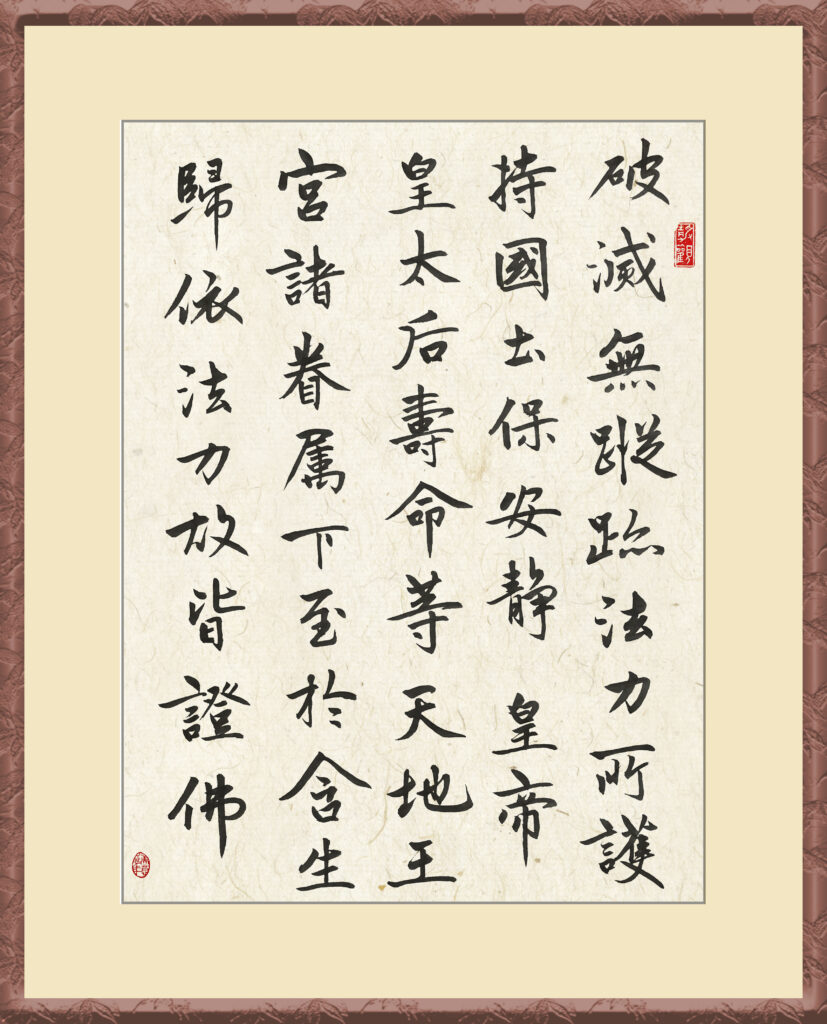 破滅無蹤跡法力所護
持國土保安靜 皇帝
皇太后壽命等天地王
宮諸眷属下至於含生
歸依法力故皆證佛